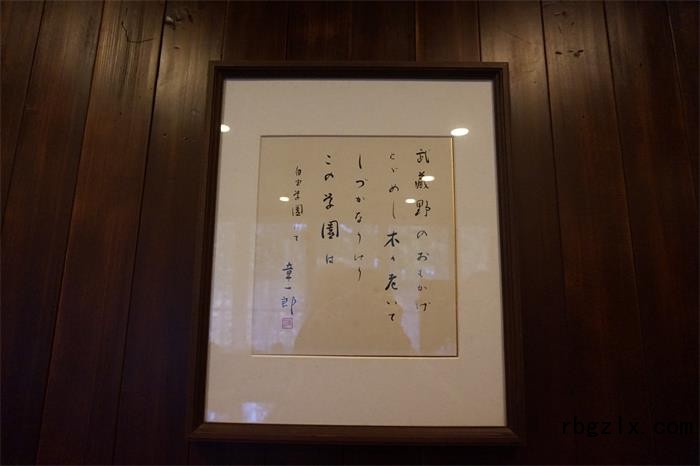 武蔵野のおもかげ
とゞめし木々老いて
しづかなりけり
この学園は
自由学園にて
章一郎
rbgzlx.com